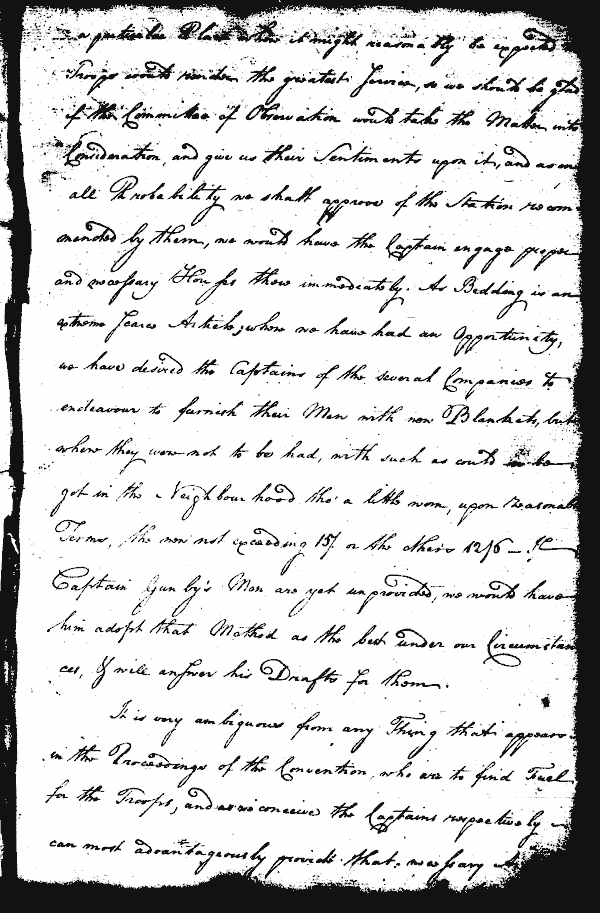 a particular Place where it might reasonably be expected
Troops would render the greatest Service, so we should be glad
if the Committee of Observation would take the Matter into
Consideration, and give us their Sentiments upon it, and as in
all Probability we shall approve of the Station recom-
mended by them, we would have the Captain engage proper
and necessary Houses there immediately. As Bedding is an
extreme scarce Article, where we have had an Opportunity,
we have desired the Captains of the several Companies to
endeavour to furnish their Men with new Blankets, but
where they were not to be had, with such as could be
got in the Neighbourhood tho' a little worn, upon reasonable
Terms, the new not exceeding 15/. or the others 12/6 - If
Captain Gunby's Men are yet unprovided, we would have
him adopt that Method as the best under our Circumstan
ces, & will answer his Drafts for them.
It is very ambiguous from any Thing that appears
in the Proceedings of the Convention, who are to find Fuel
for the Troops, and as we conceive the Captains respectively
can most advantageously provide that necessary